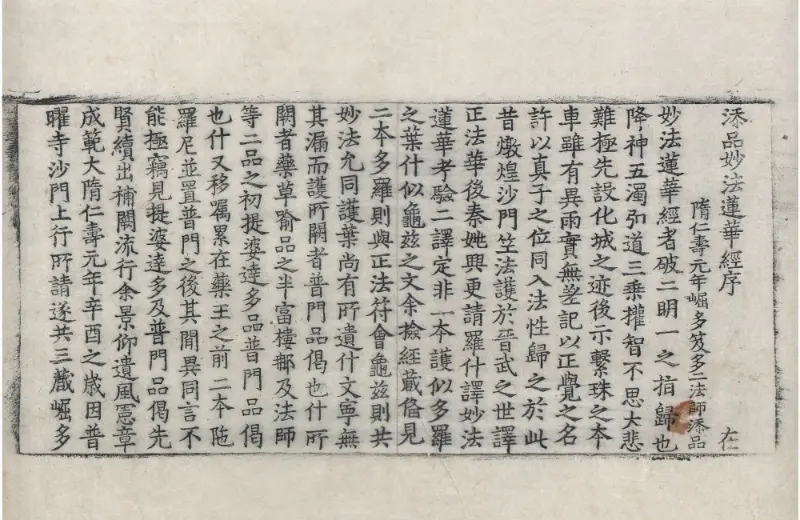 添品妙法蓮華經序 在
隋仁壽元年崛多笈多二法師添品
妙法蓮華經者破二明一之指歸也
降神五濁弘道三乘權智不思大悲
難極先設化城之迹後示繫珠之本
車雖有異雨實無差記以正覺之名
許以真子之位同入法性歸之於此
昔燉煌沙門竺法護於晉武之世譯
正法華後秦姚興更請羅什譯妙法
蓮華考驗二譯定非一本護似多羅
之葉什似龜茲之文余撿經蔵俻見
二本多羅則與正法符會龜茲則共
妙法允同護葉尚有所遺什文寧無
其漏而護所闕者普門品偈也什所
闕者藥草喻品之半富樓那及法師
等二品之初提婆達多品普門品偈
也什又移嘱累在藥王之前二本陁
羅尼並置普門之後其間異同言不
能極竊見提婆達多及普門品偈先
賢續出補闕流行余景仰遺風憲章
成範大隋仁壽元年辛酉之歳因普
曜寺沙門上行所請遂共三蔵崛多